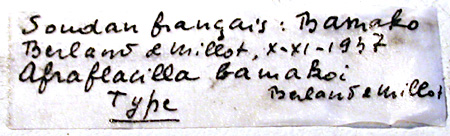 Soudan français : Bamako
Berland & Millot, X-XI-1937
Afraflacilla bamakoi
Type Berland & Millot